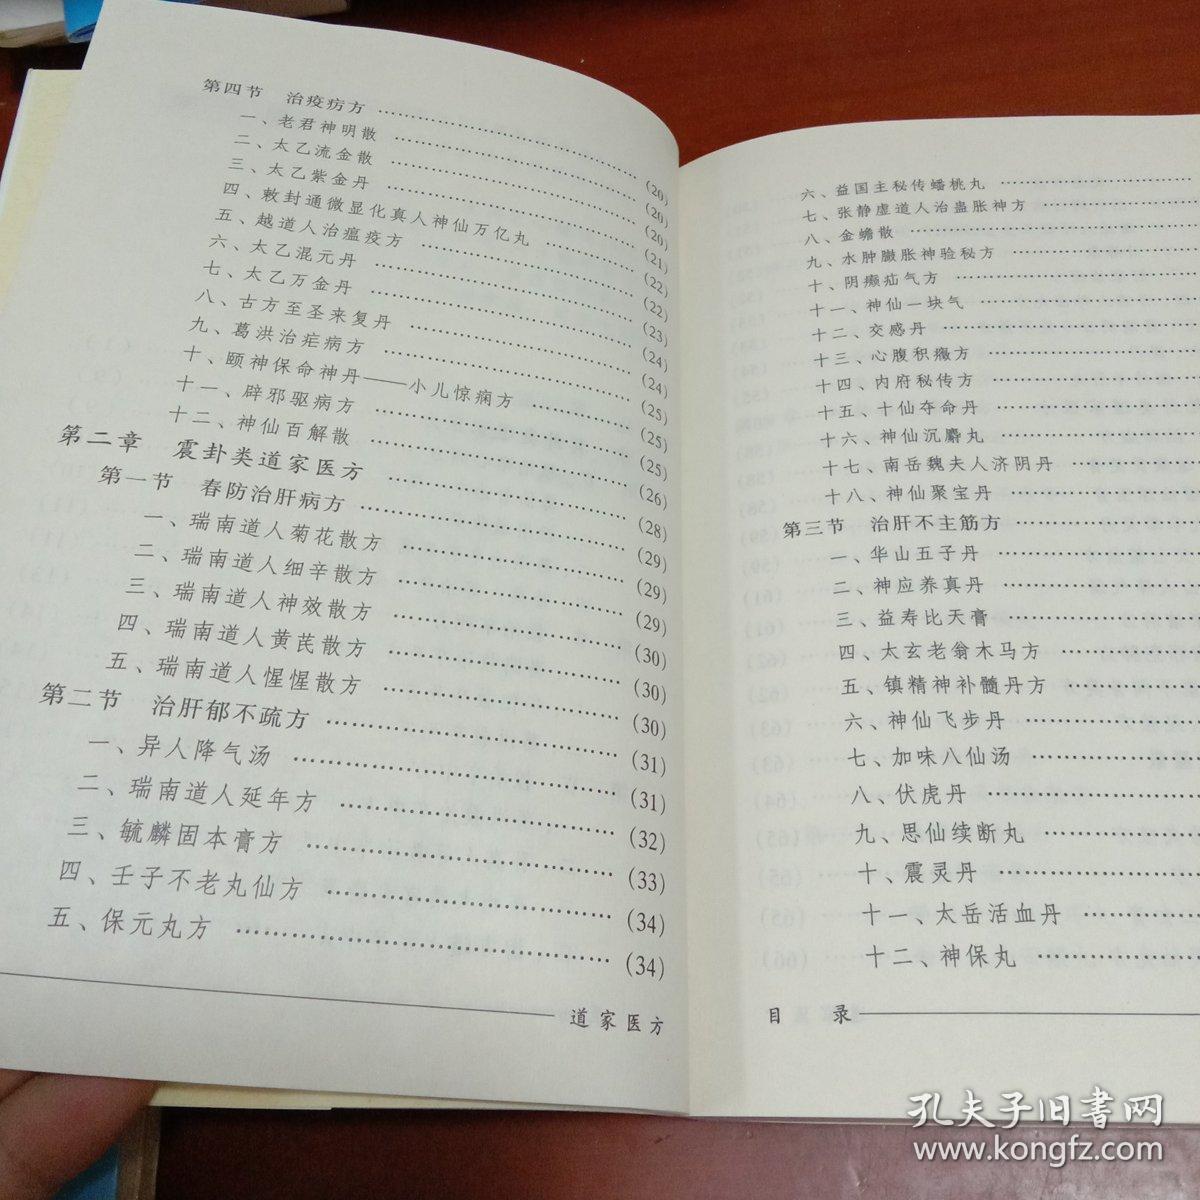 第四节 治疫疠方 (20)
一、老君神明散 (20)
二、太乙流金散 (20)
三、太乙紫金丹 (21)
四、敕封通微显化真人神仙万亿丸 (22)
五、越道人治瘟疫方 (22)
六、太乙混元丹 (23)
七、太乙万金丹 (24)
八、古方至圣来复丹 (24)
九、葛洪治疟病方 (25)
十、颐神保命神丹——小儿惊痫方 (25)
十一、辟邪驱病方 (25)
十二、神仙百解散 (26)
第二章 震卦类道家医方 (28)
第一节 春防治肝病方 (29)
一、瑞南道人菊花散方 (29)
二、瑞南道人细辛散方 (29)
三、瑞南道人神效散方 (30)
四、瑞南道人黄芪散方 (30)
五、瑞南道人惺惺散方 (30)
第二节 治肝郁不疏方 (31)
一、异人降气汤 (31)
二、瑞南道人延年方 (32)
三、毓麟固本膏方 (33)
四、壬子不老丸仙方 (34)
五、保元丸方 (34)
道家医方
六、益国主秘传蟠桃丸
七、张静虚道人治蛊胀神方
八、金蟾散
九、水肿臌胀神验秘方
十、阴癞疝气方
十一、神仙一块气
十二、交感丹
十三、心腹积癥方
十四、内府秘传方
十五、十仙夺命丹
十六、神仙沉麝丸
十七、南岳魏夫人济阴丹
十八、神仙聚宝丹
第三节 治肝不主筋方
一、华山五子丹
二、神应养真丹
三、益寿比天膏
四、太玄老翁木马方
五、镇精神补髓丹方
六、神仙飞步丹
七、加味八仙汤
八、伏虎丹
九、思仙续断丸
十、震灵丹
十一、太岳活血丹
十二、神保丸
目 录
孔夫子旧书网
www.kongfz.com